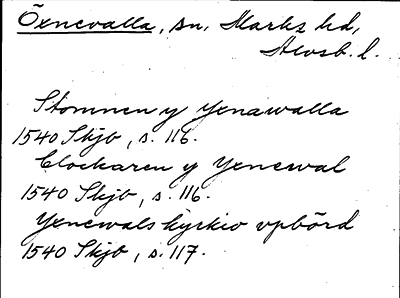 Öxnevalla, sn, Marks hd,
Älvsb. l.
Stomnen y Yxnawalla
1540 Skjb, s. 116.
Clockaren y Yxnewal
1540 Skjb, s. 116.
Yxnewals kyrkio vpbörd
1540 Skjb, s. 117.